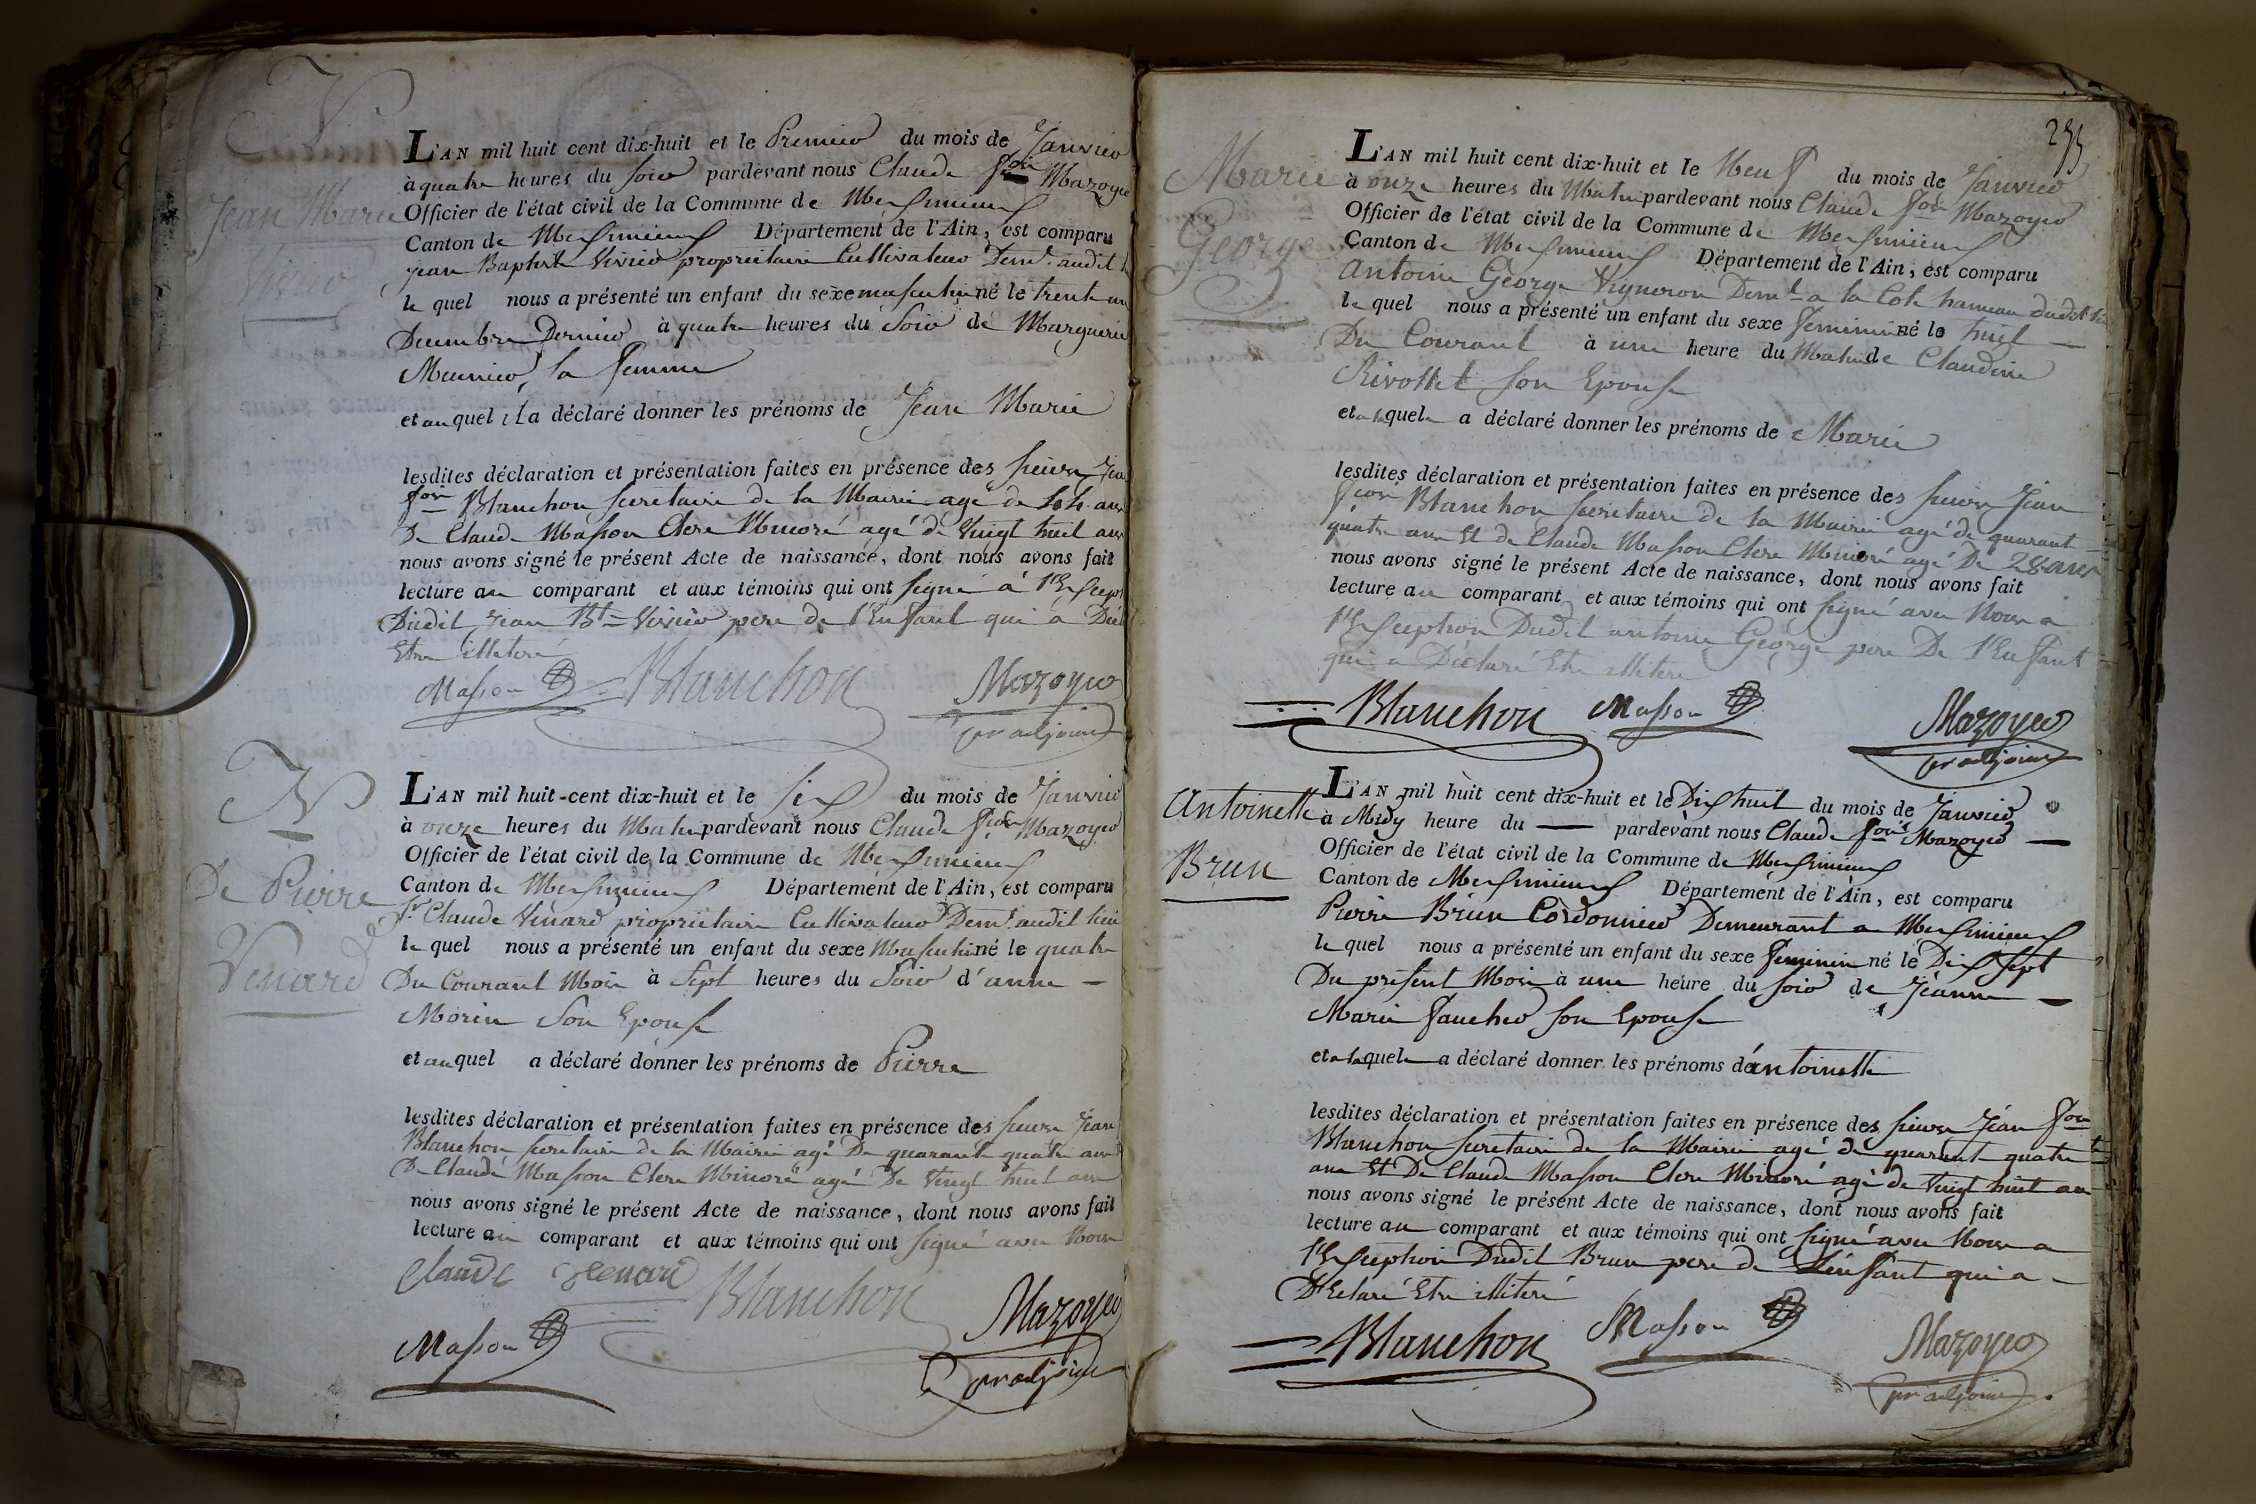 N
Jean Marie
Vivier
L'AN mil huit cent dix-huit et le Premier du mois de Janvier
à quatre heures du Soir pardevant nous Claude fois Mazoyer
Officier de l'état civil de la Commune de Meximieux
Canton de Meximieux Département de l'Ain, est comparu
Jean Baptiste Vivier propriétaire Cultivateur Demt audit
le quel nous a présenté un enfant du sexe masculin né le trente un
Decembre Dernier à quatre heures du Soir de Marguerite
Meunier sa femme
et au quel il a déclaré donner les prénoms de Jean Marie
lesdites déclaration et présentation faites en présence des sieurs Jean
fois Blanchon secretaire de la Mairie agé de 44 ans
De Claude Masson Clerc Minoré agé de Vingt huit ans
nous avons signé le présent Acte de naissance, dont nous avons fait
lecture au comparant et aux témoins qui ont signé à l'Exception
Dudit Jean Bte Vivier pere de l'Enfant qui a Dit
Etre illiteré
Masson Blanchon Mazoyer
pr adjoint
N
De Pierre
Venard
L'AN mil huit-cent dix-huit et le six du mois de Janvier
à onze heures du Matin pardevant nous Claude fois Mazoyer
Officier de l'état civil de la Commune de Meximieux
Canton de Meximieux Département de l'Ain, est comparu
sr Claude Venard propriétaire Cultivateur Demt audit lieu
le quel nous a présenté un enfant du sexe Masculin né le quatre
Du Courant Mois à Sept heures du Soir d'anne
Morin Son Epouse
et au quel a déclaré donner les prénoms de Pierre
lesdites déclaration et présentation faites en présence des sieurs Jean
Blanchon secretaire de la Mairie agé De quarante quatre ans
De Claude Masson Clerc Minoré agé De Vingt huit ans
nous avons signé le présent Acte de naissance, dont nous avons fait
lecture au comparant et aux témoins qui ont signé avec Nous
Claude Venard Blanchon Mazoyer
Masson pr adjoint
Marie
George
L'AN mil huit cent dix-huit et le Neuf du mois de Janvier
à onze heures du Matin pardevant nous Claude fois Mazoyer
Officier de l'état civil de la Commune de Meximieux
Canton de Meximieux Département de l'Ain, est comparu
Antoine George Vigneron Demt a la Cote hameau dudit lieu
le quel nous a présenté un enfant du sexe feminin né le huit
Du Courant à une heure du Matin de Claudine
Rivollet son Epouse
et a laquelle a déclaré donner les prénoms de Marie
lesdites déclaration et présentation faites en présence des sieurs Jean
fcois Blanchon secretaire de la Mairie agé de quarante
quatre ans Et de Claude Masson Clerc Minoré agé De 28 ans
nous avons signé le présent Acte de naissance, dont nous avons fait
lecture au comparant et aux témoins qui ont signé avec Nous a
l'Exception Dudit antoine George pere De l'Enfant
qui a Déclaré Etre illiteré
Blanchon Masson Mazoyer
pr adjoint
Antoinette
Brun
L'AN mil huit cent dix-huit et le Dix huit du mois de Janvier
à Midy heure du — pardevant nous Claude fois Mazoyer
Officier de l'état civil de la Commune de Meximieux
Canton de Meximieux Département de l'Ain, est comparu
Pierre Brun Cordonnier Demeurant a Meximieux
le quel nous a présenté un enfant du sexe feminin né le Dix Sept
Du présent Mois à une heure du soir de Jeanne
Marie Faucher son Epouse
et a laquelle a déclaré donner les prénoms d'antoinette
lesdites déclaration et présentation faites en présence des sieurs Jean fois
Blanchon secretaire de la Mairie agé de quarante quatre
ans Et De Claude Masson Clerc Minoré agé de Vingt huit ans
nous avons signé le présent Acte de naissance, dont nous avons fait
lecture au comparant et aux témoins qui ont signé avec Nous a
l'Exception Dudit Brun pere de L'enfant qui a
Déclaré Etre illiteré
Blanchon Masson Mazoyer
pr adjoint